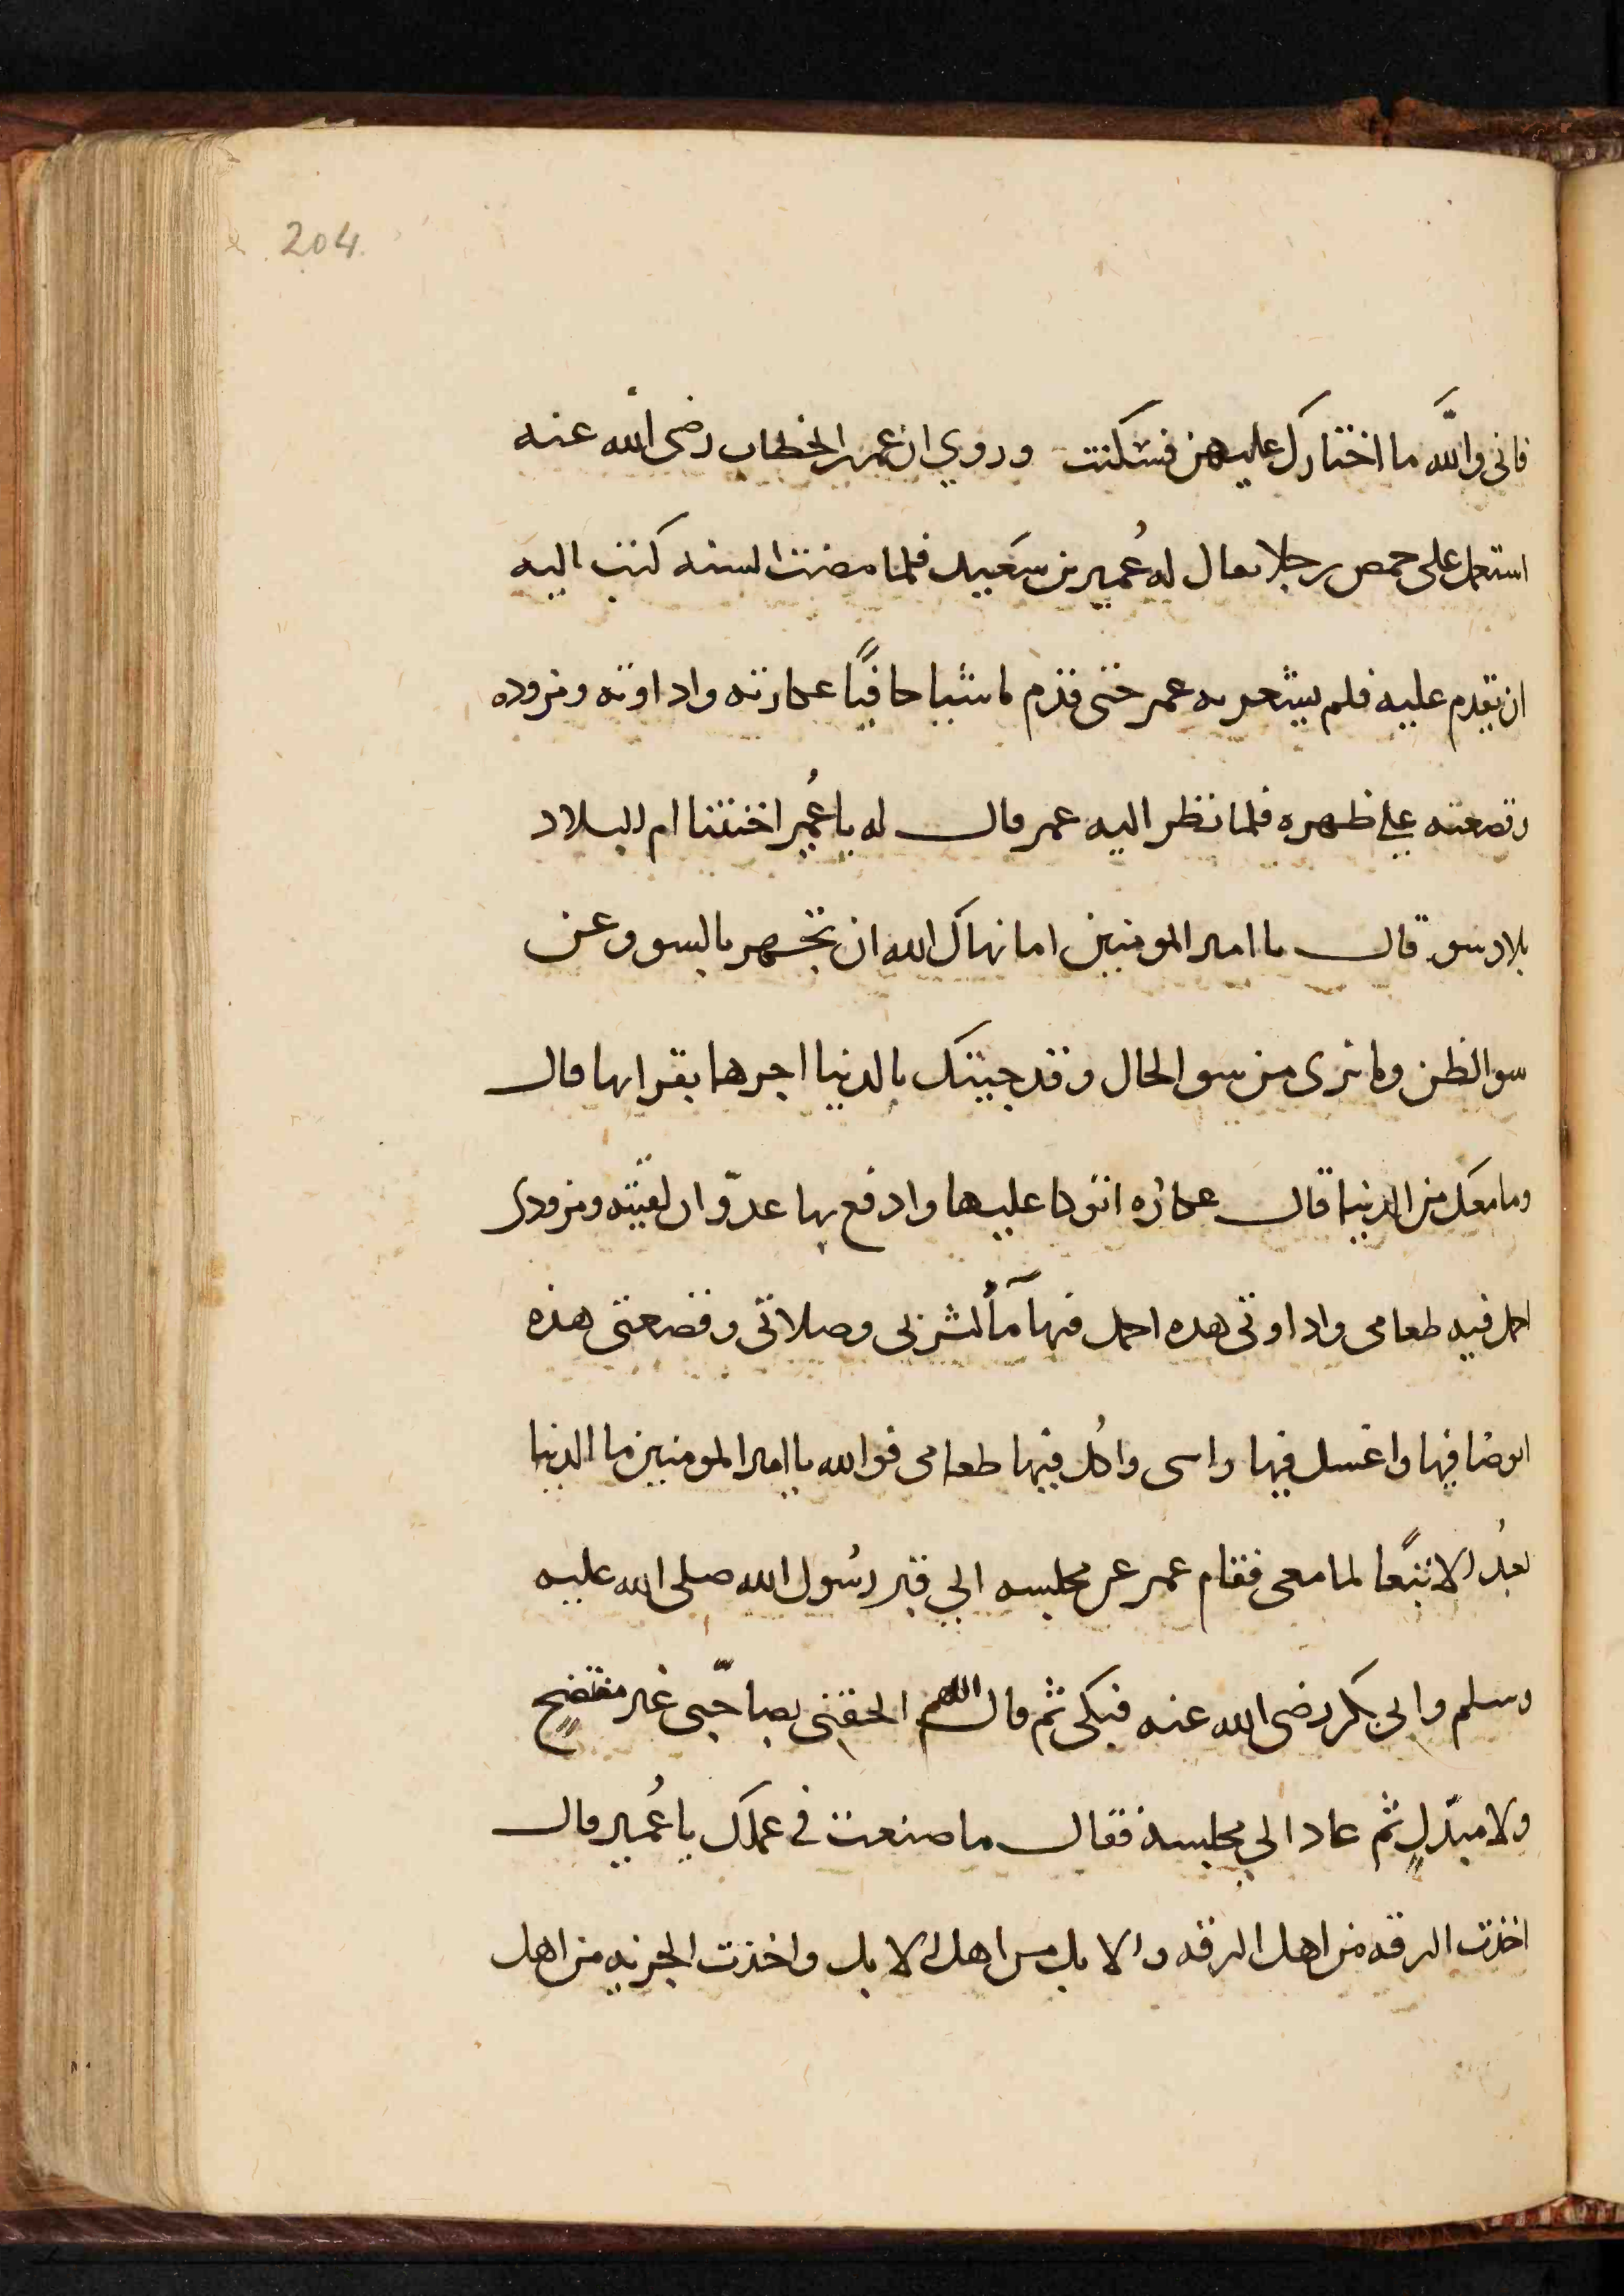 204
فانى والله ما اختارك عليهن فسكنت وروي ان عمر بن الخطاب رضى الله عنه
استعمل على حمص رجلا يقال له عُمير بن سَعيد فلما مضت السنه كتب اليه
ان تقدم عليه فلم يشعر به عمر حتى قدم ماشيا حافيًا عكازته واداوته ومزوده
وقصعته على ظهره فلما نظر اليه عمر قال له يا عُمير اختنتنا ام البلاد
بلاد سو قال يا امير المومنين اما نهاك الله ان تجهر بالسو وعن
سو الظن وما ترى من سو الحال وقد جيتك بالدنيا اجرها بقرابها قال
وما معك من الدنيا قال عكازه اتوكا عليها وادفع بها عدوّا ان لقيته ومزودى
احمل فيه طعامى واداوتى هذه احمل فيها مآً لشربى وصلاتى وقصعتى هذه
اتوضا فيها واغسل فيها راسى واكُل فيها طعامى فوالله يا امير المومنين ما الدنيا
بعدُ الا تبَعًا لما معى فقام عمر عن مجلسه الي قبر رسُول الله صلى الله عليه
وسلم وابى بكر رضى الله عنه فبكى ثم قال اللهم الحقنى بصاحبّى غير مفتضحٍ
ولا مبدّلٍ ثم عاد الي مجلسه فقال ما صنعت فى عملك يا عُمير قال
اخذت الرقه من اهل الرقه والابل من اهل الابل واخذت الجزيه من اهل